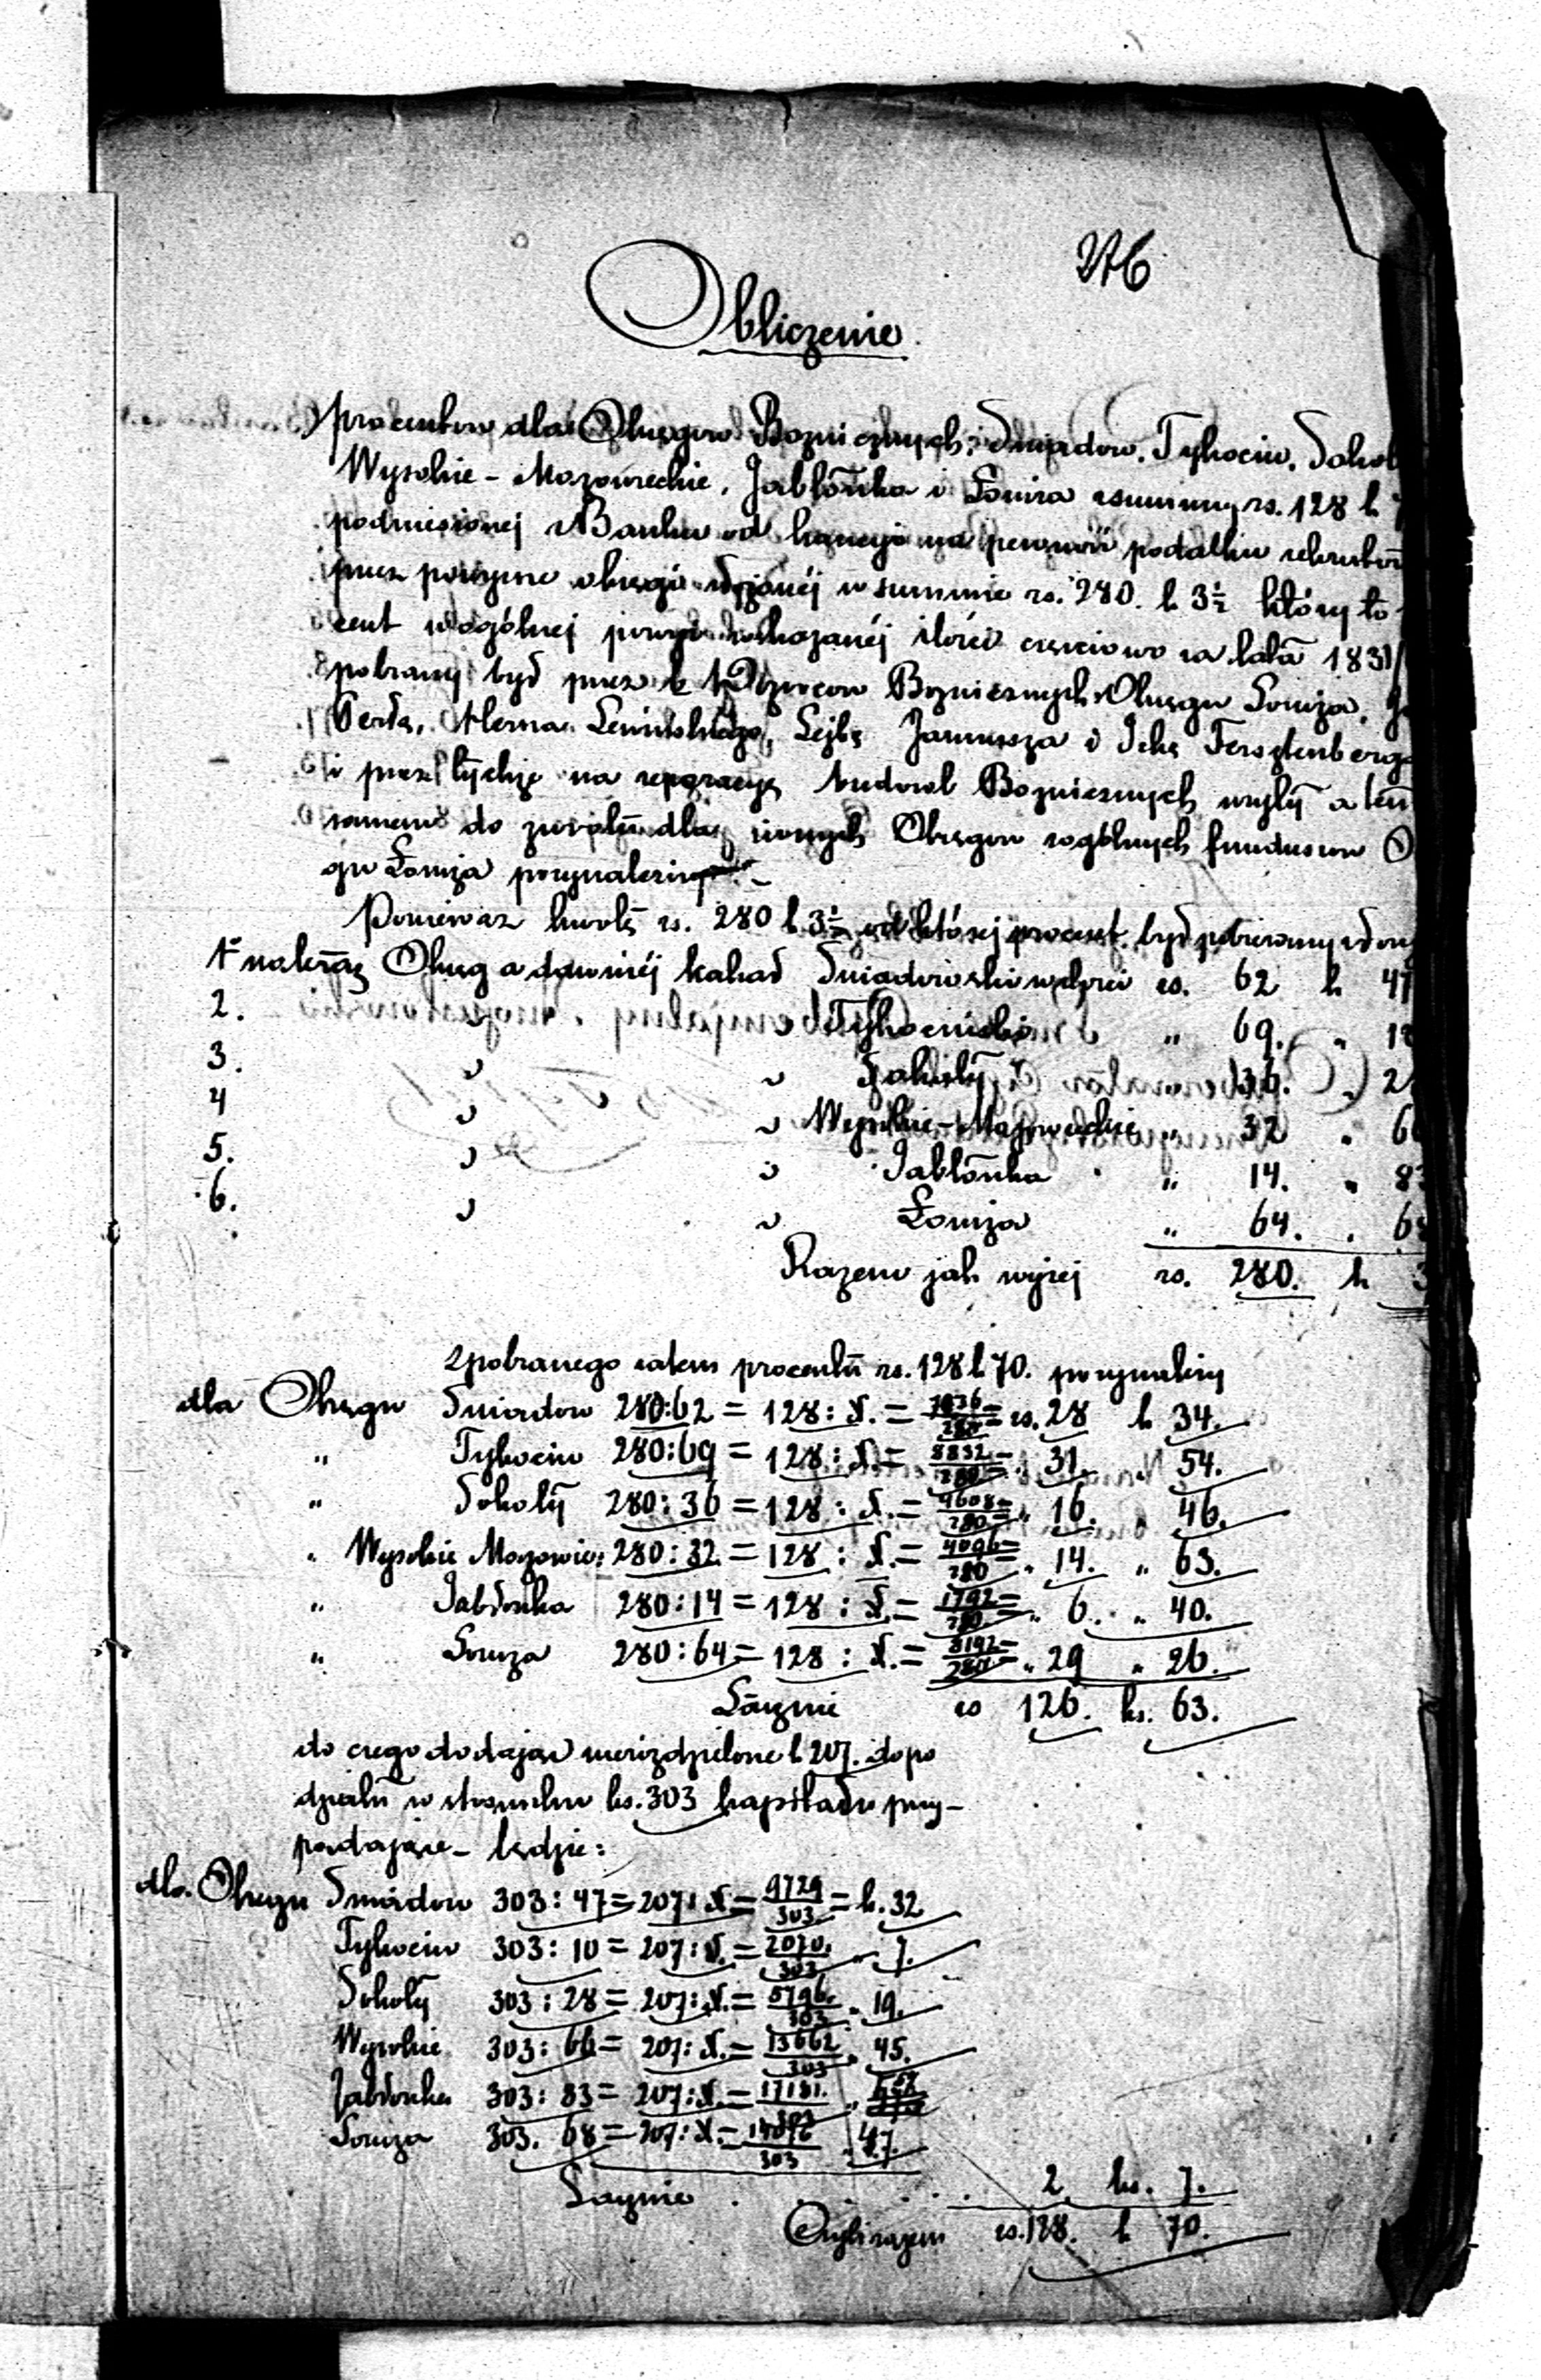 276
Obliczenie
procentow dla Okręgow Bozniczných: Sniadow. Tykocin. Sokoł
Wysokie - Mazowieckie, Jabłonka i Łomza z summy rs. 128 k
podniesionej z Banku od kaucyi na pewność podatku rekrutow
przez powyzsze okręgi w summie rs. 280. k 3½ który to
cent w ogólnej powyż wskazanéj ilości częściowo za lata 1831/
pobrany był przez b Dozorcow Bozniczných Okręgu Łomza,
Perła, Herna Lewińskiego, Lejbę Janusza i Icka Fersztenberga
i przez tychże na reperacyę budowl Bozniczných użyty a tem
samem do zwrotu dla innych Okręgow z ogólnych funduszow O
gu Łomza przynależny
Poniewaz kwotę rs. 280 k 3½ od której procent był pobierany
1o należą Okręg a dawniéj kahał Sniadowski wchodzi rs. 62 k 47
2. " " Tykocinski " 69. " 10
3. " " Sokoły " 36. " 2
4 " " Wysokie-Mazowieckie " 32 " 66
5. " " Jabłonka " 14. " 83
6. " " Łomza " 64. " 68
Razem jak wyzej rs. 280. k 3
z pobranego zatem procentu rs. 128 k 70. przynależy
dla Okręgu Sniadow 280:62 = 128: X. = 7936/280 = rs. 28 k 34.
" Tykocin 280:69 = 128: X. = 8832/280 = " 31. " 54.
" Sokoły 280:36 = 128: X. = 4608/280 = " 16. " 46.
" Wysokie Mazowie: 280:32 = 128: X. = 4096/280 = " 14. " 63.
" Jabłonka 280:14 = 128: X. = 1792/280 = " 6. " 40.
" Łomza 280:64 = 128: X. = 8192/280 = " 29 " 26.
Łącznie rs 126. ks. 63.
do czego dodając nierozdzielone k 207. do po
działu w stosunku ks. 303 kapitału przy-
padające - będzie:
dla Okręgu Sniadow 303:47 = 207: X. = 9729/303 = k. 32
Tykocin 303:10 = 207: X. = 2070/303 " 7.
Sokoły 303:28 = 207: X. = 5796/303 " 19.
Wysokie 303:66 = 207: X. = 13662/303 " 45.
Jabłonka 303:83 = 207: X. = 17181/303 " 57
Łomza 303.68 = 207: X. = 14076/303 " 47.
Łącznie 2. ks. 7.
Czyli razem rs. 128. k 70.